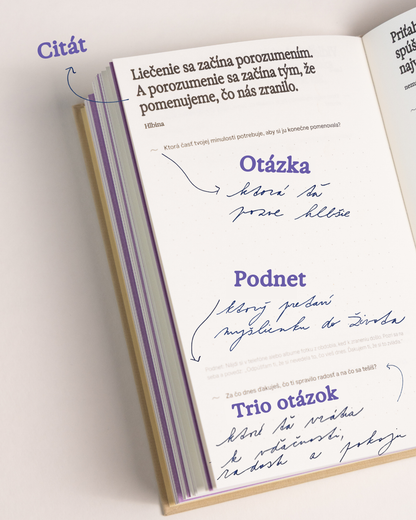 Citát
Liečenie sa začína porozumením.
A porozumenie sa začína tým, že
pomenujeme, čo nás zranilo.
Hĺbina
Ktorá časť tvojej minulosti potrebuje, aby si ju konečne pomenovala?
Otázka
ktorá ťa
pozve hlbšie
Podnet
ktorý pretaví
myšlienku do života
Za čo dnes ďakuješ, čo ti spravilo radosť a na čo sa tešíš?
Trio otázok
ktoré ťa vráťa
k vďačnosti,
radosti a pokoju
Príťaž
spúš
najv